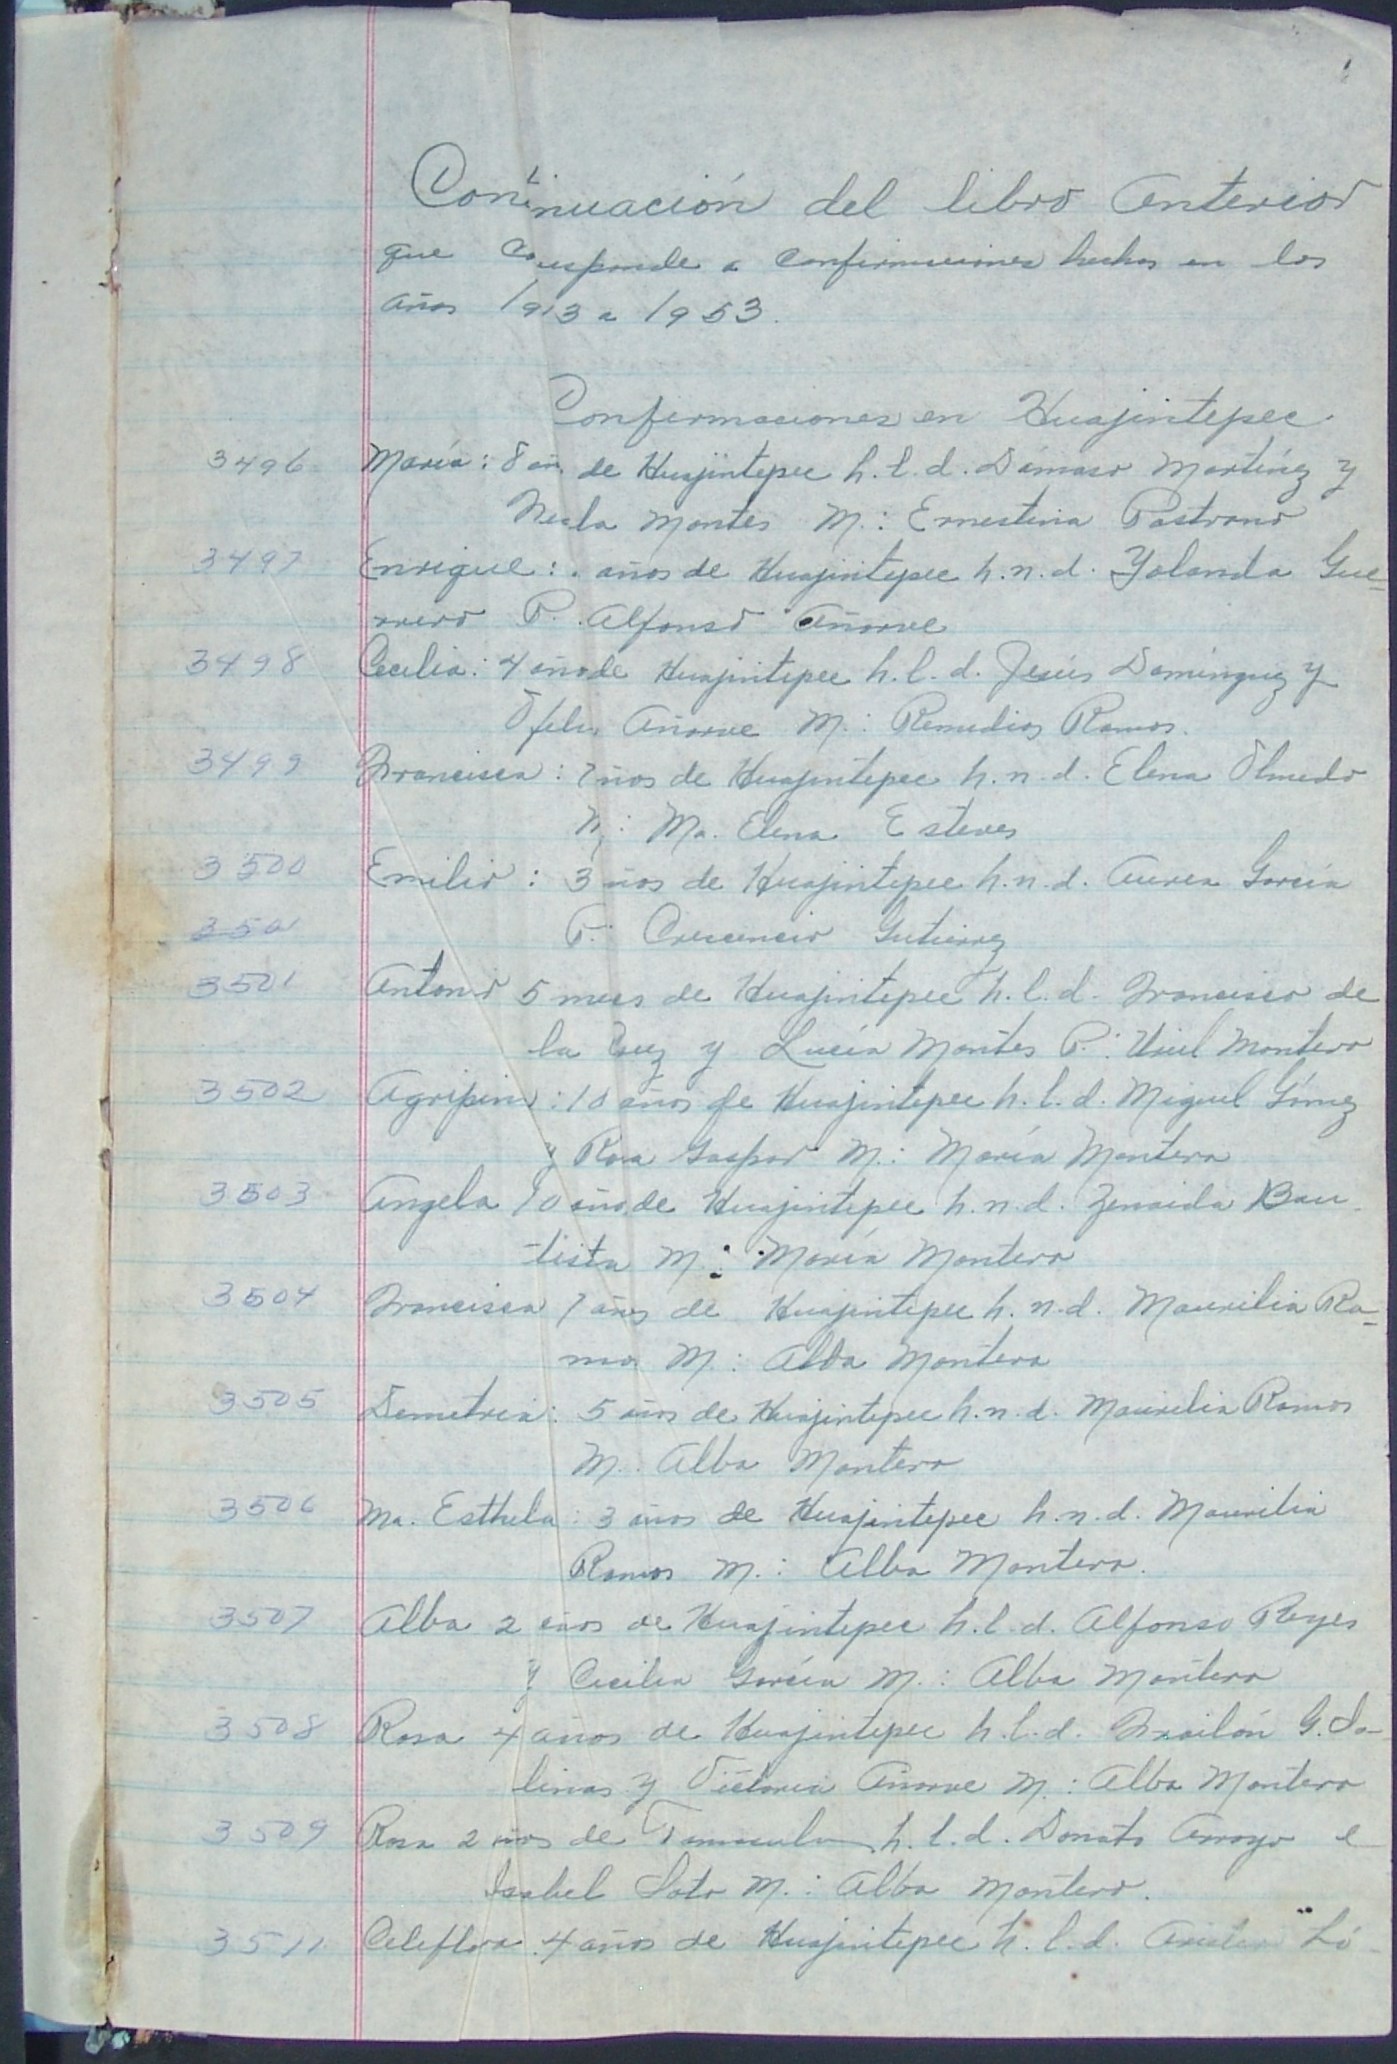 Continuación del libro Anterior
que Coresponde a Confirmaciones hechas en los
Años 1913 a 1953.
Confirmaciones en Huajintepec.
3496 María: 8 añ de Huajintepec h.l.d. Dámaso Martínez y
Montes M.: Ernestina Pastrana
3497 Enrique: años de Huajintepec h.n.d. Yolanda Gue-
rrero P. Alfonso Añorve
3498 Cecilia: 4 año de Huajintepec h.l.d. Jesús Domínguez y
Ofelia Añorve M.: Remedios Ramos.
3499 Francisca: 7 ños de Huajintepec h.n.d. Elena Olmedo
M: Ma. Elena Esteves
3500 Emilio: 3 ños de Huajintepec h.n.d. Aurea García
350 P. Crescencio Gutierrez
3501 Antonio 5 meses de Huajintepec h.l.d. Francisco de
la Cruz y Lucía Montes P.: Uriel Montero
3502 Agripin: 10 años de Huajintepec h.l.d. Miguel Gómez
y Rosa Gaspar M.: María Montero
3503 Angela 10 año de Huajintepec h.n.d. Zenaida Bau-
tista M.: María Montero
3504 Francisca 7 años de Huajintepec h.n.d. Maurilia Ra-
mos M.: Alba Montero
3505 Demetria: 5 años de Huajintepec h.n.d. Maurilia Ramos
M. Alba Montero
3506 Ma. Esthela: 3 años de Huajintepec h.n.d. Maurilia
Ramos M.: Alba Montero.
3507 Alba 2 años de Huajintepec h.l.d. Alfonso Reyes
y Cecilia García M.: Alba Montero
3508 Rosa 4 años de Huajintepec h.l.d. Frailán G. Sa-
linas y Victoria Añorve M.: Alba Montero
3509 Rosa 2 años de h.l.d. Donato Arroyo e
Isabel Soto M.: Alba Montero.
3511 Celeflora 4 años de Huajintepec h.l.d. Ló-